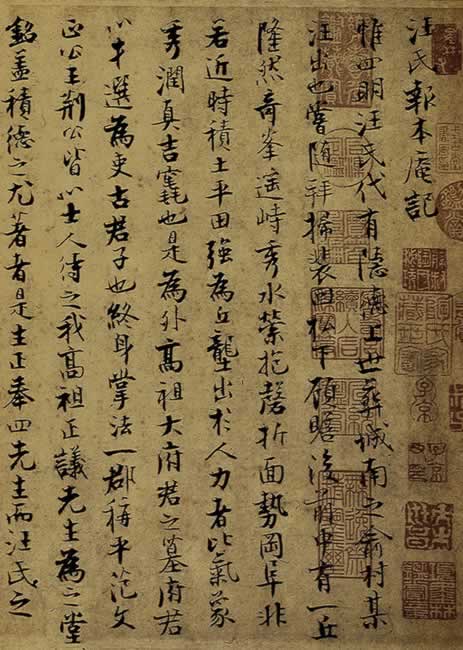 汪氏報本庵記
惟四明汪氏代有隱德上世葬城南之俞村某
汪出也嘗隨拜掃裴回松下顧瞻後前中有一丘
隆然奇峯遥峙秀水縈抱磬折面勢岡阜非
若近時積土平田強為丘壟出於人力者比氣象
秀潤真吉竁也是為外高祖大府君之墓府君
以才選為吏古君子也終身掌法一郡稱平范文
正公王荆公皆以士人待之我高祖正議先生為之堂
銘盖積德之尤著者是生正奉四先生而汪氏之